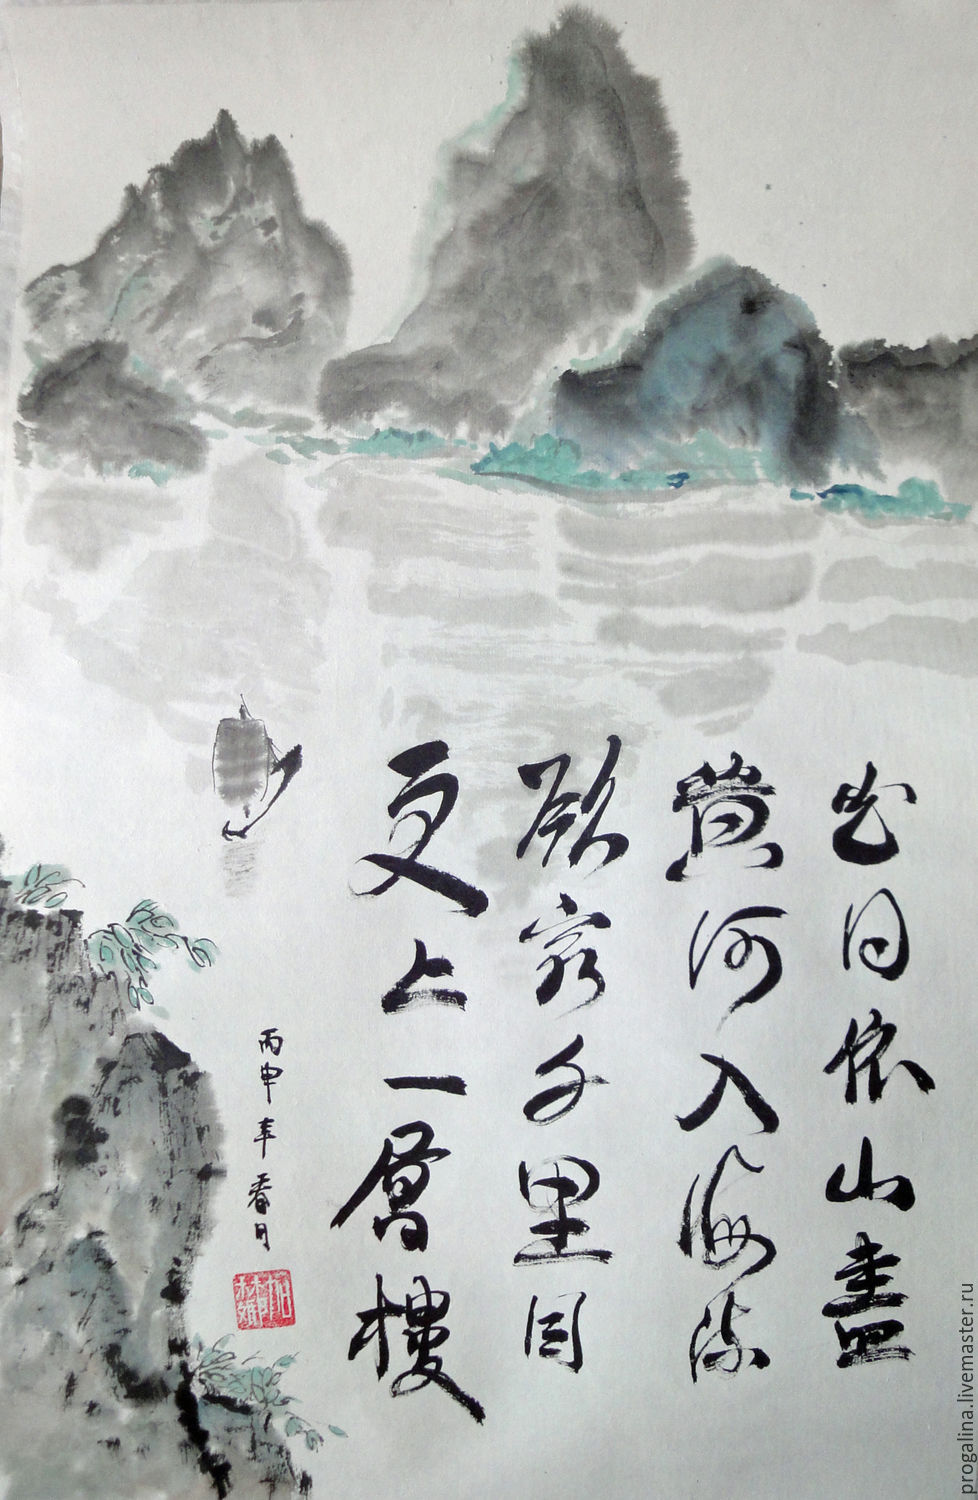 白日依山盡
黄河入海流
欲窮千里目
更上一層樓
丙申年春月
progalina.livemaster.ru